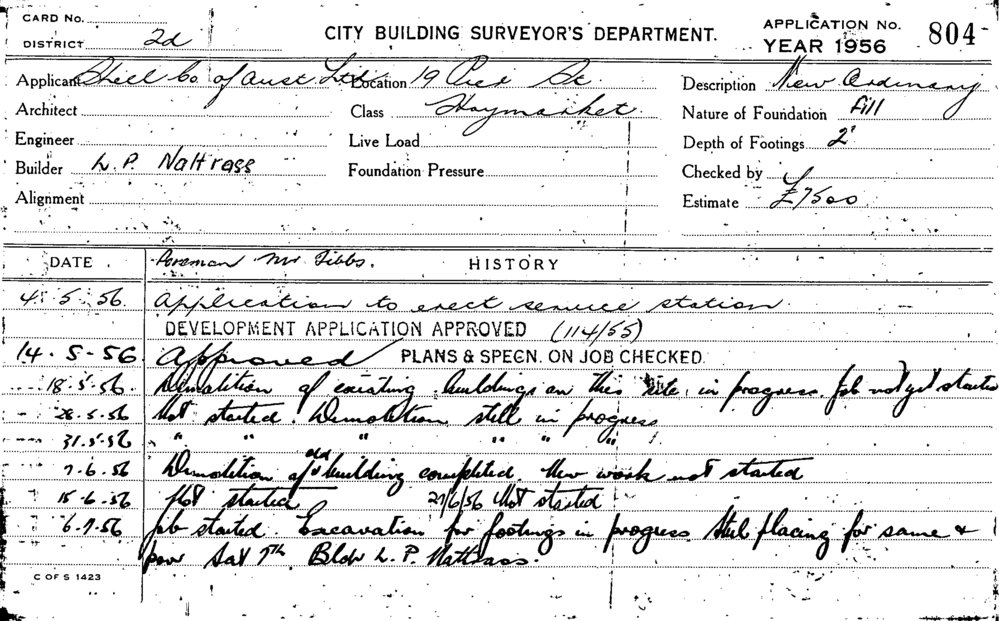 CARD No.
DISTRICT 2d
CITY BUILDING SURVEYOR'S DEPARTMENT.
APPLICATION No. 804
YEAR 1956
Applicant Shell Co of Aust Ltd Location 19 Pier St. Description New Ordinary
Architect Class Haymarket Nature of Foundation fill
Engineer Live Load Depth of Footings 2'
Builder L. P. Nattrass Foundation Pressure Checked by
Alignment Estimate £7500
DATE Foreman Mr Tibbs. HISTORY
4.5.56 Application to erect service station
DEVELOPMENT APPLICATION APPROVED (114/55)
14.5-56. Approved PLANS & SPECN. ON JOB CHECKED.
18.5.56. Demolition of existing buildings on this site in progress. Job not yet started
28.5.56 Not started. Demolition still in progress
31.5.56 " " " " " "
7.6.56 Demolition of old building completed. New work not started
15.6.56 Not started 27/6/56 Not started
6.7.56 Job started. Excavation for footings in progress Steel placing for same &
pour Sat 7th. Bldr L. P. Nattrass.
C OF S 1423